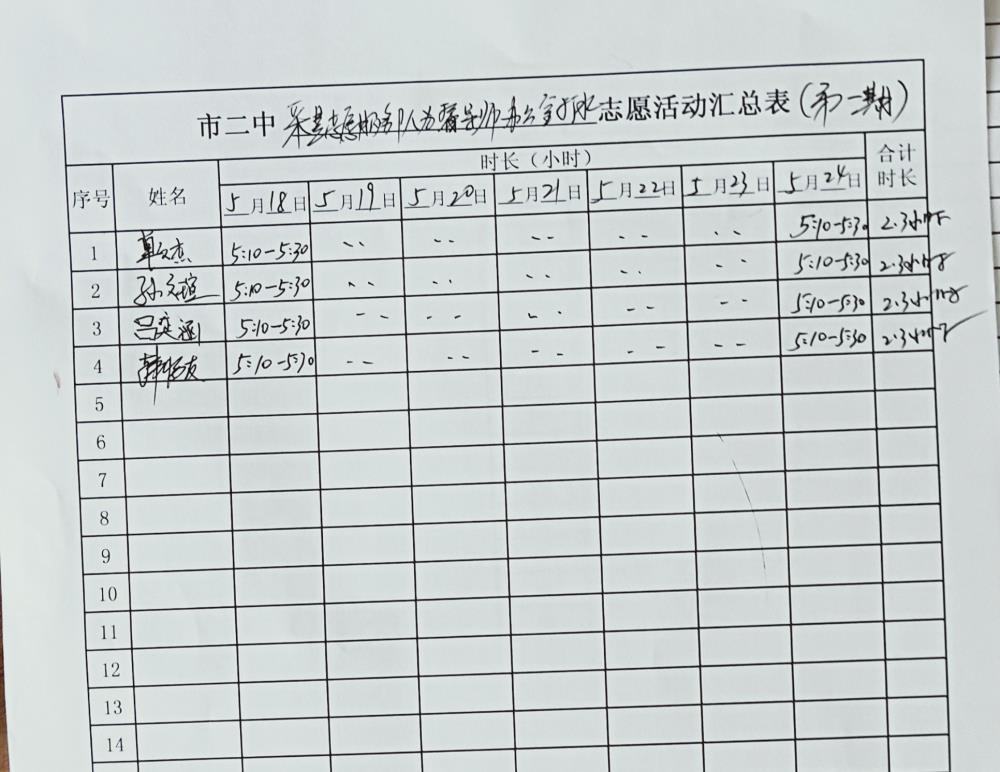 市二中 志愿服务队为 导师办公室打水志愿活动汇总表(第一期)
序号 姓名 时长（小时） 合计时长
5月18日 5月19日 5月20日 5月21日 5月22日 5月23日 5月24日
1 5:10-5:30 、、 、、 、、 、、 、、 5:10-5:30 2.3小时
2 孙文瑄 5:10-5:30 、、 、、 、、 、、 、、 5:10-5:30 2.3小时
3 吕奕涵 5:10-5:30 、、 、、 、、 、、 、、 5:10-5:30 2.3小时
4 5:10-5:30 、、 、、 、、 、、 、、 5:10-5:30 2.3小时
5
6
7
8
9
10
11
12
13
14